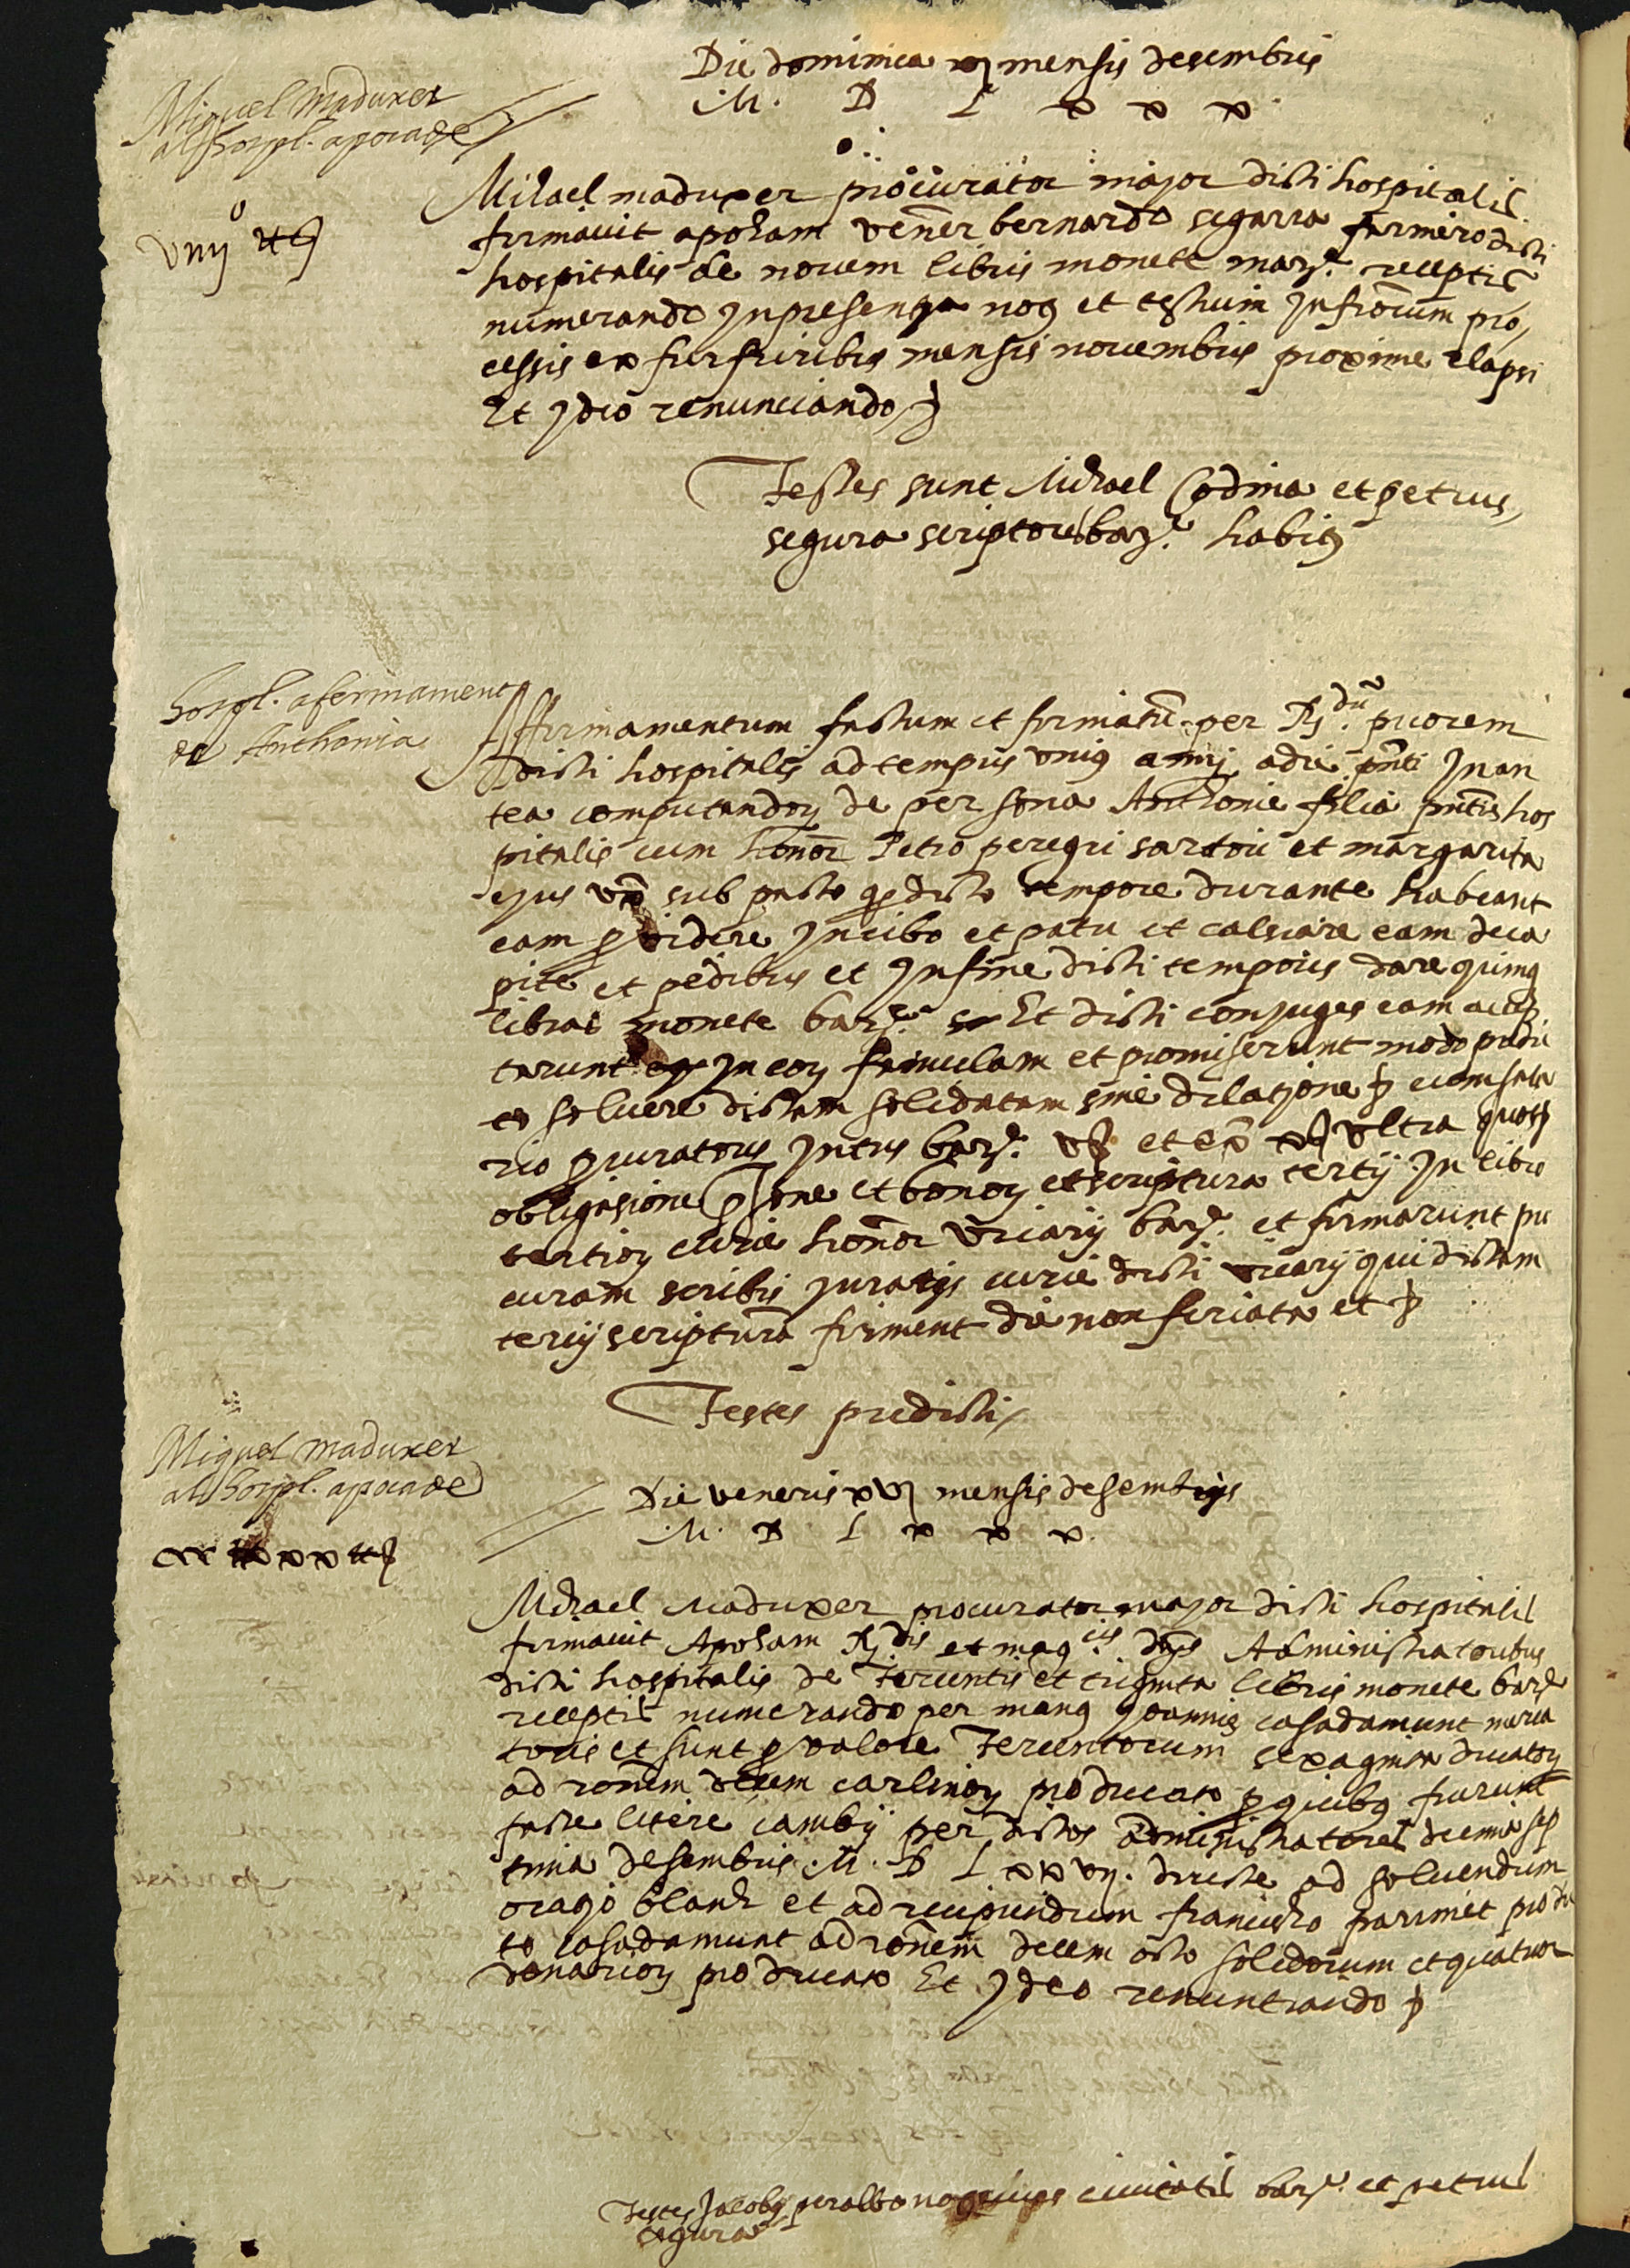 Die dominica xj mensis desembris
M. D L x x x
Miquel Maduxer
al hospl. apoca de
viiij ll s
Michael maduxer procurator major dicti hospitalis
firmavit apocham vener bernardo segarra farinero dicti
hospitalis de novem libris monete barª receptis
numerando in presentia noꝫ et testium infrorum pro
cessis ex furfuribus mensis novembris proxime elapsi
Et ideo renunciando &
Testes sunt Michael Codina et petrus
segura scriptores barª. habitꝫ
hospl. afermament
de Anthonia
Affirmamentum factum et firmatũ per Rdũ. priorem
dicti hospitalis ad tempus unius anni a die pñti in an
tea computandoꝝ de persona Anthonie filia pñtis hos
pitalis cum honor Petro peregri sartori et margarita
ejus ux sub pacto qꝫ dicto tempore durante habeant
eam providere in cibo et potu et calciare eam de ca
pite et pedibus et in fine dicti temporis dare quinqꝫ
libras monete barª. Et dicti conjuges eam accep
tarunt in eoꝝ famulam et promiserunt modo predic
to solvere dictam solidatam sine dilatione & cum sala
rio procuratoris intus barª. v s et ex x s ultra quos &
obligasione psone et bonoꝝ et scriptura tertij in libro
tertioꝝ curie honor vicarij barª. et firmarunt pro
curam scribis juratis curie dicti vicarij qui dictam
tercij scripturã firment die non feriata et &
Testes predicti
Miquel maduxer
al hospl. apoca de
Die veneris xvj mensis desembris
M. D L x x x.
ccc xxx ll s
Michael Maduxer procurator major dicti hospitalis
firmavit Apocham Rdis et magcis dñis Administratoribus
dicti hospitalis de Tercentis et triginta libris monete barª
receptis numerando per manꝫ Joannis casadamunt merca
toris et sunt p valore Tercentorum sexaginta ducatoꝝ
ad ronem decem carlinoꝝ pro ducato p quibꝫ fuerunt
facte litere cambij per dictos administratores decima sep
tima desembris. M. D L xxvij. directe ad solvendum
oragio blanch et ad recipiendum francischo parimet pro dic
to casadamunt ad ronem decem octo solidorum et quatuor
denarioꝝ pro ducato Et ideo renuntiando &
Testes Jacobꝫ peralbo notarius civitatis barª. et petrus
segura